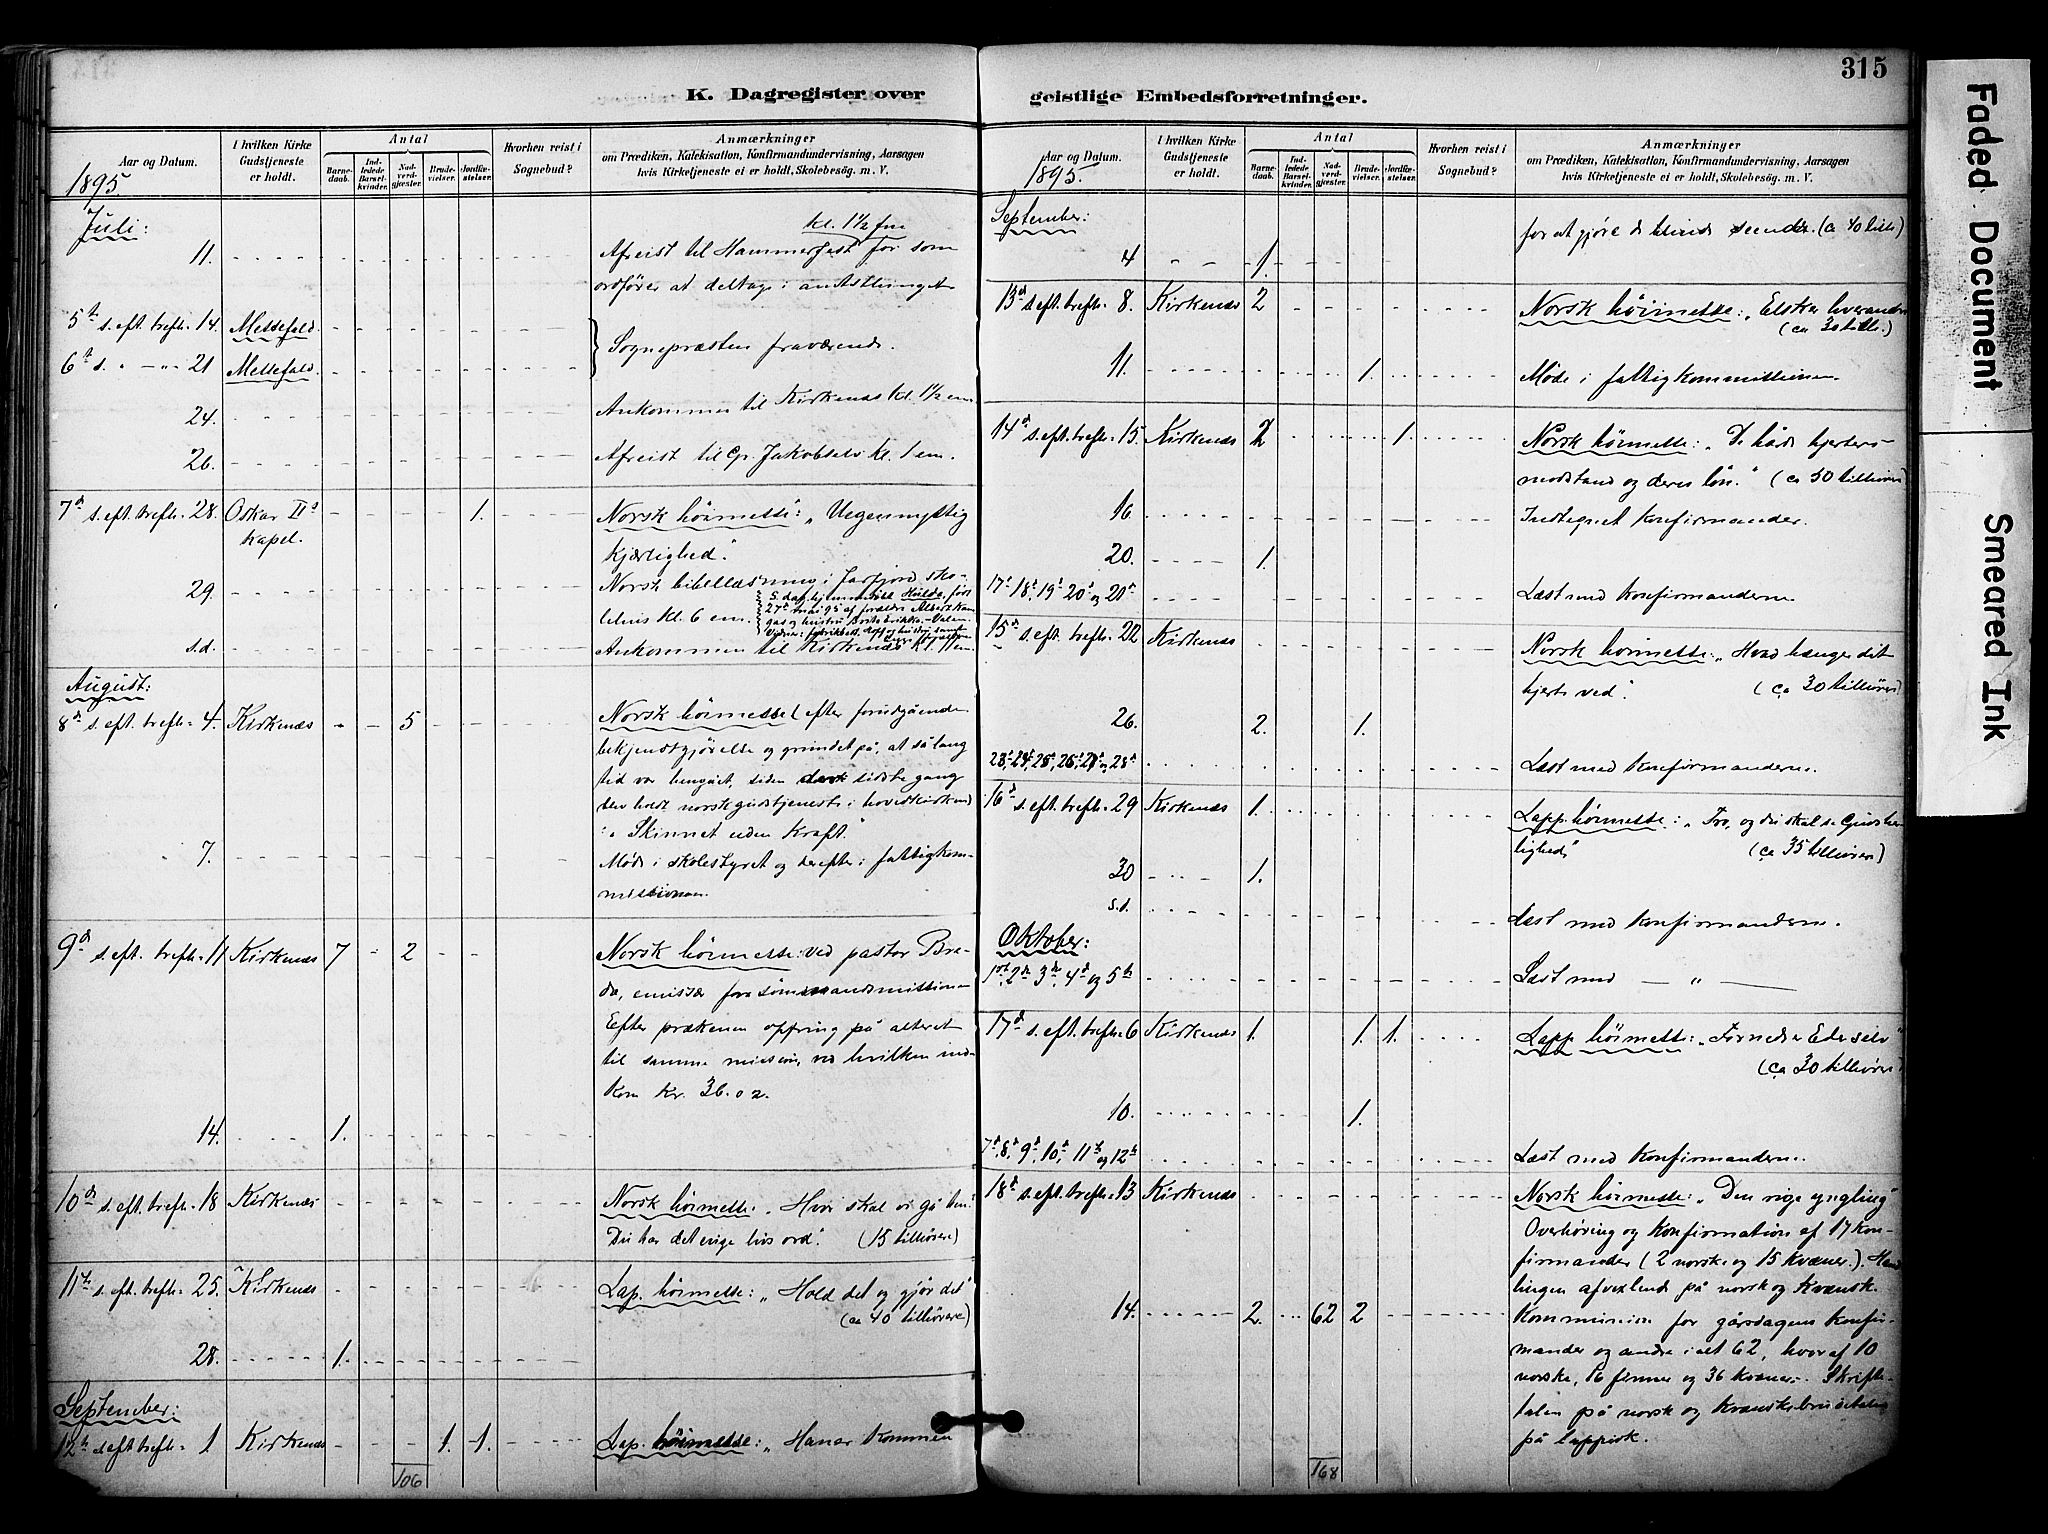 315
K. Dagregister over geistlige Embedsforretninger.
Aar og Datum.
I hvilken Kirke Gudstjeneste er holdt.
Antal
Barnedaab.
Indledede Barselkvinder.
Nadverdgjester.
Brudevielser.
Jordfæstelser.
Hvorhen reist i Sognebud?
Anmærkninger
om Prædiken, Katekisation, Konfirmandundervisning, Aarsagen
hvis Kirketjeneste ei er holdt, Skolebesøg. m. V.
1895
Juli:
kl. 1½ fm
11. Afreist til Hammerfest for som
ordfører at deltage i amtstinget
5te s. eft. trefh. 14. Messefald.
Sognepræsten fraværende.
6te s. " — " 21 Messefald.
24. Ankommen til Kirkenæs kl. 1½ em
26. Afreist til Gr. Jakobselv kl. 1 em.
7de s. eft. trefh. 28. Oskar IIs kapel. 1. Norsk høimesse: „Uegennyttig
kjærlighed".
29. Norsk bibellæsning i Jarfjord sko-
lehus kl. 6 em.
s.d. Ankommen til Kirkenæs kl. 11 em
August:
8de s. eft. trefh. 4. Kirkenæs - - 5 Norsk høimesse (efter forudgående
bekjendtgjørelse og grundet på, at så lang
tid var hengået, siden sidste gang
blev holdt norsk gudstjeneste i hovedkirken)
: „Skinnet uden Kraft."
7. Møde i skolestyret og derefter i fattigkom-
missionen.
9de s. eft. trefh. 11 Kirkenæs 7 - 2 - - Norsk høimesse: ved pastor Bra-
de, emissær for sømandsmissionen
Efter prækenen offring på alteret
til samme mission, ved hvilken ind-
kom kr. 36.02.
14. 1.
10de s. eft. trefh. 18 Kirkenæs Norsk høimesse. „Hvor skal vi gå hen.
Du har det evige livs ord". (15 tilhørere)
11te s. eft. trefh. 25. Kirkenæs Lap. høimesse: „Hold det og gjør det"
(ca 40 tilhørere)
28. 1.
September:
12te s. eft. trefh. 1 Kirkenæs 1. 1. Lap. høimesse: „Han er kommen
106
K. Dagregister over geistlige Embedsforretninger.
Aar og Datum.
I hvilken Kirke Gudstjeneste er holdt.
Antal
Barnedaab.
Indledede Barselkvinder.
Nadverdgjester.
Brudevielser.
Jordfæstelser.
Hvorhen reist i Sognebud?
Anmærkninger
om Prædiken, Katekisation, Konfirmandundervisning, Aarsagen
hvis Kirketjeneste ei er holdt, Skolebesøg. m. V.
1895.
September:
for at gjøre de blinde seende. (ca 40 tilh)
4 1.
13de s. eft. trefh. 8. Kirkenæs 2 Norsk høimesse: „Elsker hverandre
(ca 30 tilh.)
11. 1. Møde i fattigkommissionen.
14de s. eft. trefh. 15. Kirkenæs 2 1. Norsk høimesse: „De hårde hjerters
modstand og deres løn." (ca 50 tilhørere)
16 Indtegnet konfirmander.
20. 1.
17de 18de 19de 20de og 20de Læst med konfirmanderne.
15de s. eft. trefh. 22 Kirkenæs Norsk høimesse: „Hvad hænger dit
hjerte ved". (ca 30 tilhørere)
26. 2. 1.
23de, 24de, 25de, 26de, 27de og 28de Læst med konfirmanderne.
16de s. eft. trefh. 29 Kirkenæs 1. Lapp. høimesse: „Tro, og du skal se Guds her-
lighed" (ca 35 tilhørere)
30 1.
s.d. Læst med konfirmanderne.
Oktober:
1ste, 2den 3de, 4de og 5te Læst med — „ —
17de s. eft. trefh. 6 Kirkenæs 1. 1. 1. Lapp. høimesse: „Fornedre Eder selv"
(ca 30 tilhørere)
10. 1.
7de, 8de, 9de, 10de, 11te og 12te Læst med konfirmanderne.
18de s. eft. trefh. 13 Kirkenæs Norsk høimesse: „Den rige yngling"
Overhøring og konfirmation af 17 kon-
firmander (2 norske og 15 kvæner). Hand
lingen afvexlende på norsk og kvænsk.
14. 2. 62 2 Kommunion for gårsdagens konfir-
mander og andre i alt 62, hvoraf 10
norske, 16 finner og 36 kvæner. Skrifte-
talen på norsk og kvænsk
på lappisk.
168
Faded Document
Smeared Ink